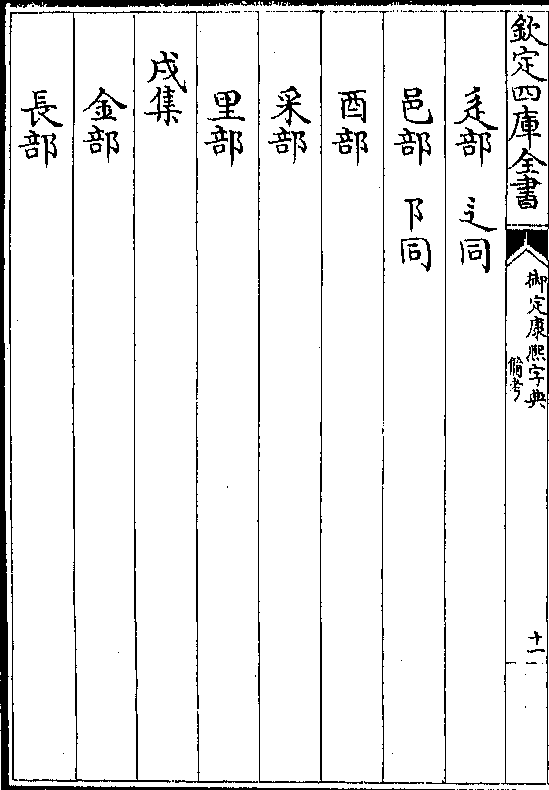 欽定四庫全書
御定康熙字典
備考
十一
辵部 辶同
邑部 阝同
酉部
釆部
里部
戌集
金部
長部